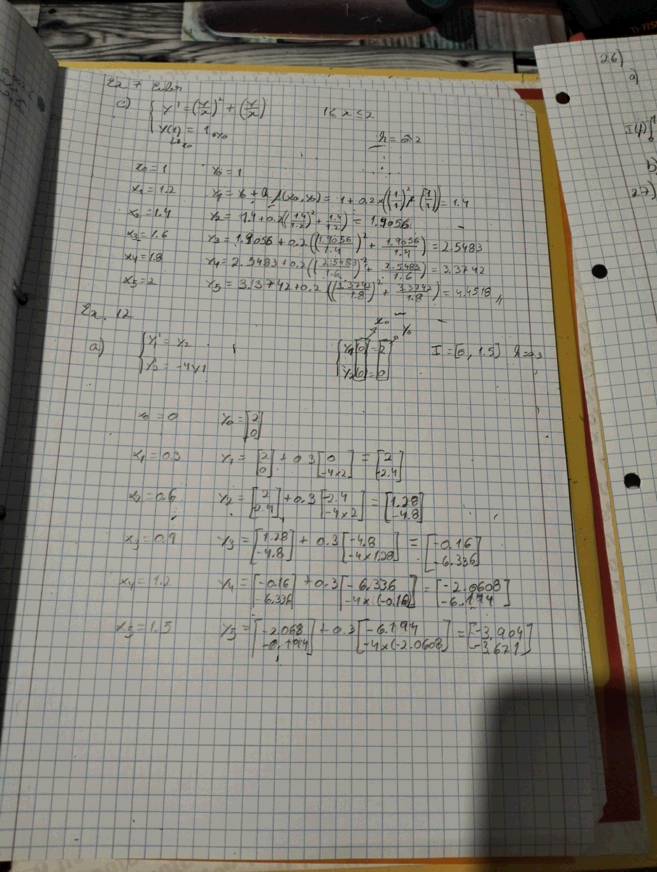 Ex 7 Euler
c) { y' = (y/x)² + (y/x) 1 ≤ x ≤ 2
y(1) = 1 y0 h = 0.2
x0
x0 = 1 y0 = 1
x1 = 1.2 y1 = y0 + h f(x0, y0) = 1 + 0.2 × ((1/1)² + (1/1)) = 1.4
x2 = 1.4 y2 = 1.4 + 0.2 ((1.4/1.2)² + 1.4/1.2) = 1.9056
x3 = 1.6 y3 = 1.9056 + 0.2 ((1.9056/1.4)² + 1.9056/1.4) = 2.5483
x4 = 1.8 y4 = 2.5483 + 0.2 ((2.5483/1.6)² + 2.5483/1.6) = 3.3742
x5 = 2 y5 = 3.3742 + 0.2 ((3.3742/1.8)² + 3.3742/1.8) = 4.4518
Ex. 12
x0 y0
a) { y1' = y2 { y1[0] = 2 I = [0, 1.5] h = 0.3
y2' = -4y1 y2[0] = 0
x0 = 0 y0 = [2 0]
x1 = 0.3 y1 = [2 0] + 0.3 [0 -4×2] = [2 -2.4]
x2 = 0.6 y2 = [2 -2.4] + 0.3 [-2.4 -4×2] = [1.28 -4.8]
x3 = 0.9 y3 = [1.28 -4.8] + 0.3 [-4.8 -4×1.28] = [-0.16 -6.336]
x4 = 1.2 y4 = [-0.16 -6.336] + 0.3 [-6.336 -4×(-0.16)] = [-2.0608 -6.144]
x5 = 1.5 y5 = [-2.068 -6.144] + 0.3 [-6.144 -4×(-2.0608)] = [-3.904 -3.671]
26)
a)
b)
27)